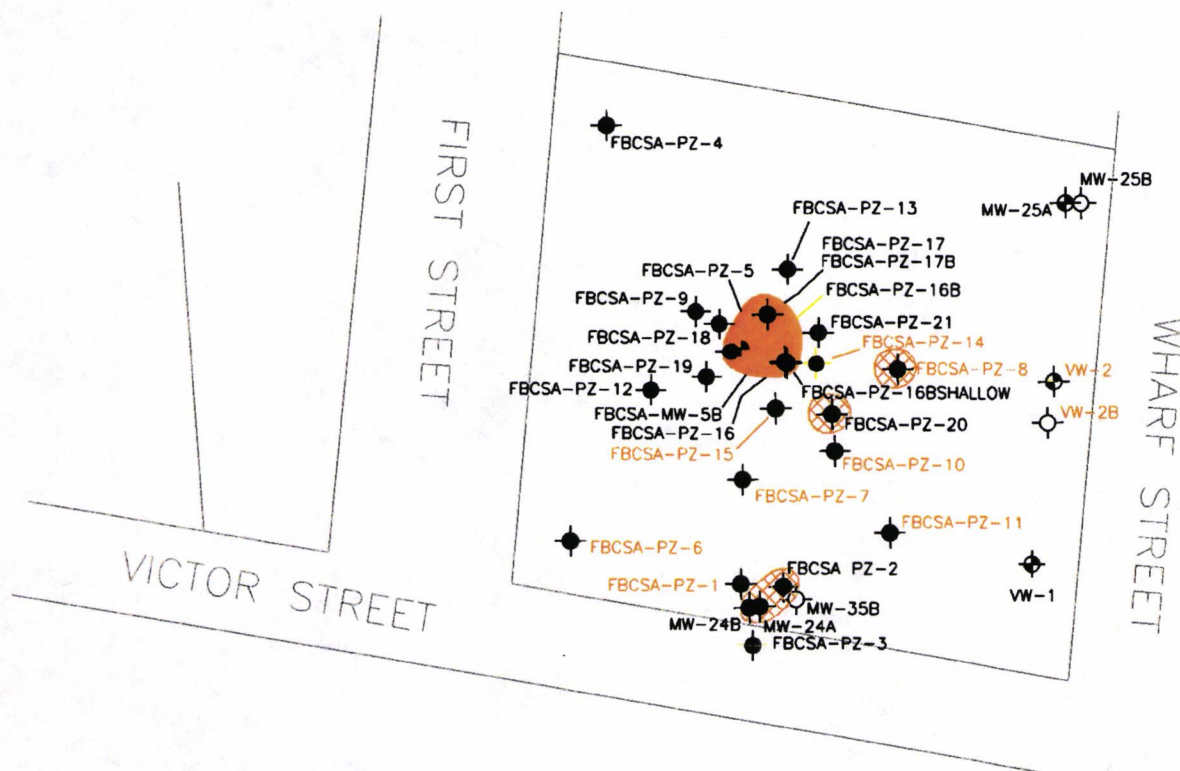 FIRST STREET
FBCSA-PZ-4
MW-25B
MW-25A
FBCSA-PZ-13
FBCSA-PZ-17
FBCSA-PZ-17B
FBCSA-PZ-5
FBCSA-PZ-16B
FBCSA-PZ-9
FBCSA-PZ-21
FBCSA-PZ-18
FBCSA-PZ-14
FBCSA-PZ-8
FBCSA-PZ-19
VW-2
FBCSA-PZ-12
FBCSA-PZ-16BSHALLOW
FBCSA-MW-5B
VW-2B
FBCSA-PZ-20
FBCSA-PZ-16
FBCSA-PZ-15
FBCSA-PZ-10
FBCSA-PZ-7
FBCSA-PZ-11
FBCSA-PZ-6
WHARF STREET
FBCSA PZ-2
FBCSA-PZ-1
VW-1
MW-35B
MW-24B
MW-24A
FBCSA-PZ-3
VICTOR STREET